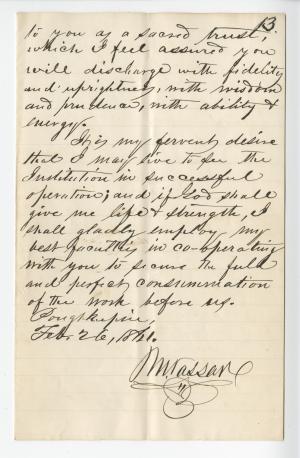 13
to you as a sacred trust,
which I feel assured you
will discharge with fidelity
and uprightness, with wisdom
and prudence, with ability &
energy.
It is my fervent desire
that I may live to see the
Institution in successful
operation; and if God shall
give me life & strength, I
shall gladly employ my
best faculties in co-operating
with you to secure the full
and perfect consummation
of the work before us.
Poughkepsie,
Feb. 26, 1861.
M Vassar